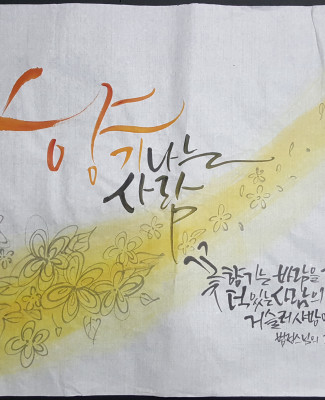 향기나는
사람
꽃향기는 바람을
덕있는 사람의
거슬러 사방
법정스님의